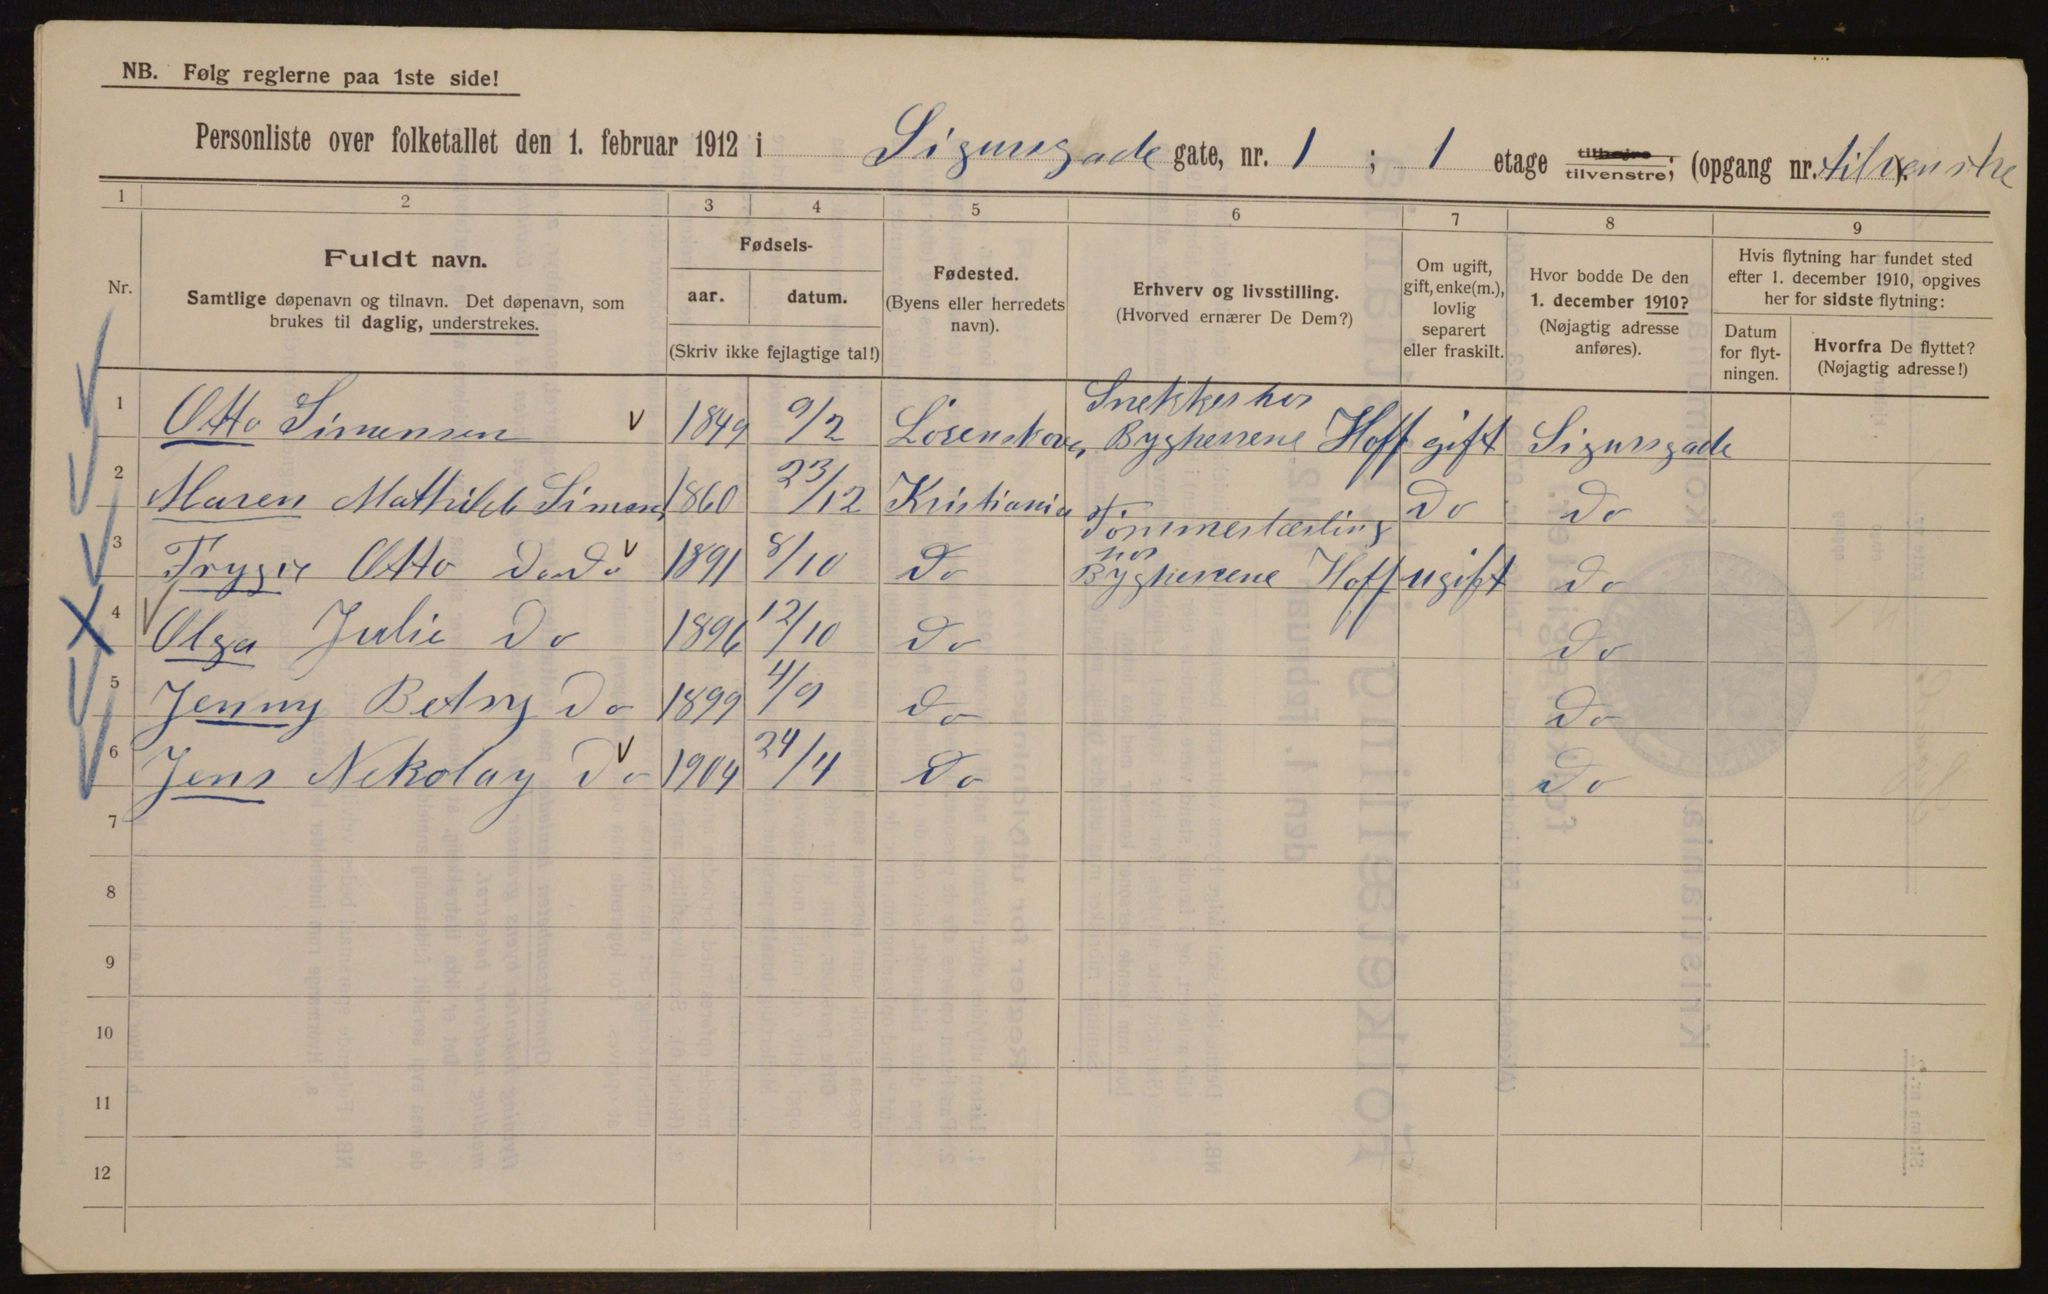 NB. Følg reglerne paa 1ste side!
Personliste over folketallet den 1. februar 1912 i Sigursgade gate, nr. 1 ; 1 etage tilhøjre tilvenstre; (opgang nr. tilvenstre ).
1 2 3 4 5 6 7 8 9
Nr.
Fuldt navn.
Samtlige døpenavn og tilnavn. Det døpenavn, som
brukes til daglig, understrekes.
Fødsels-
aar. datum.
(Skriv ikke fejlagtige tal!)
Fødested.
(Byens eller herredets
navn).
Erhverv og livsstilling.
(Hvorved ernærer De Dem?)
Om ugift,
gift, enke(m.),
lovlig
separert
eller fraskilt.
Hvor bodde De den
1. december 1910?
(Nøjagtig adresse
anføres).
Hvis flytning har fundet sted
efter 1. december 1910, opgives
her for sidste flytning:
Datum
for flyt-
ningen.
Hvorfra De flyttet?
(Nøjagtig adresse!)
1 Otto Simensen 1849 9/2 Snekker hos Bygherrene Hoff gift Sigursgade
2 Maren Mathilde 1860 23/12 Kristiania Do Do
3 Otto Do Do 1891 8/10 Do Tømmerlærling hos Bygherrene Hoff ugift Do
4 Olga Julie Do 1896 12/10 Do Do
5 Jenny Betsy Do 1899 4/9 Do Do
6 Jens Nekolay Do 1904 24/4 Do Do
7
8
9
10
11
12